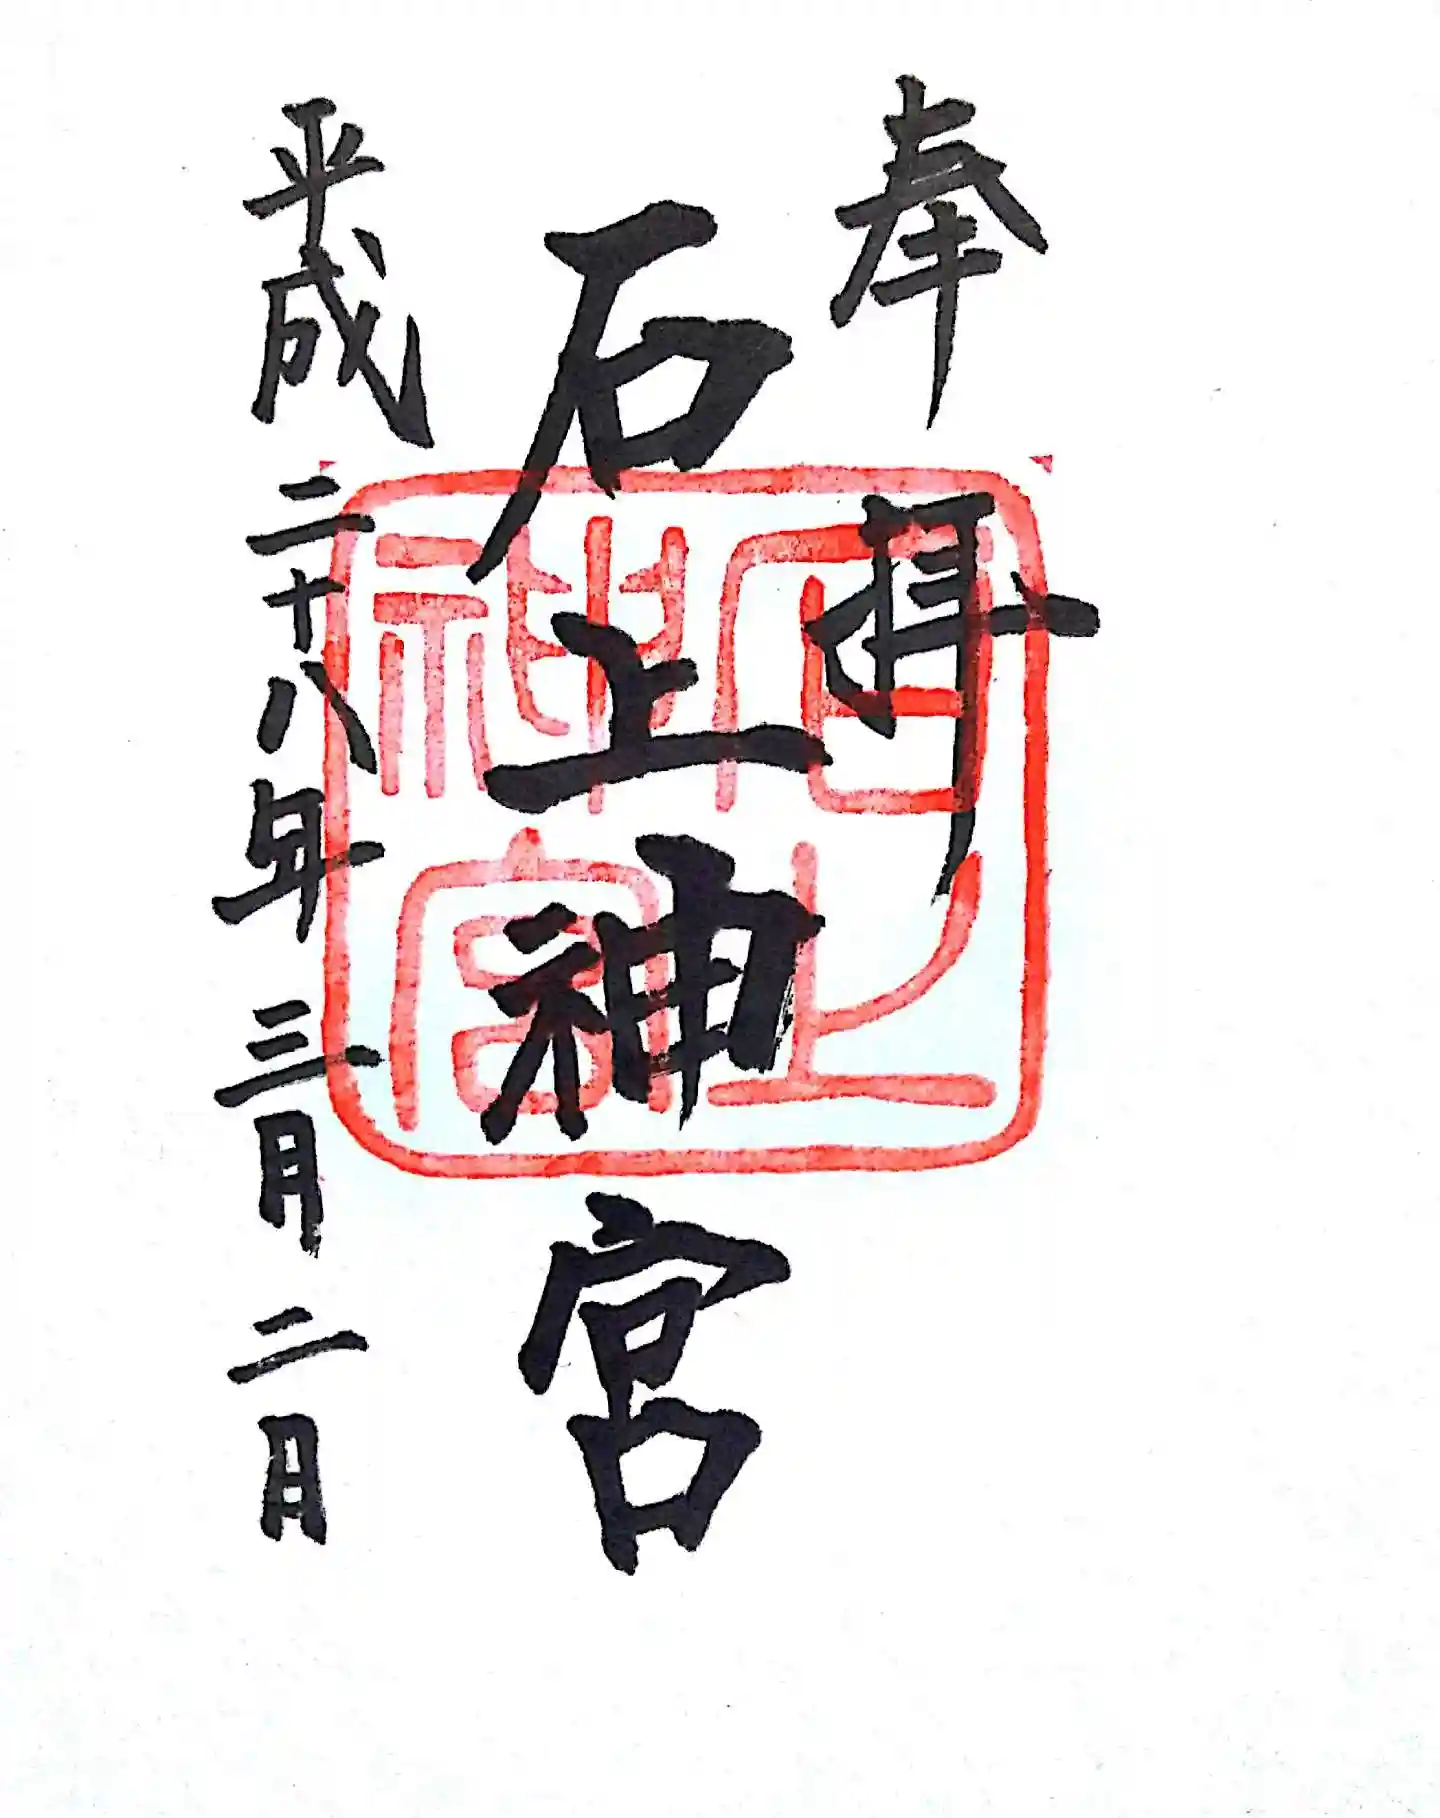 奉拝
石上神宮
平成二十八年三月二日
石上神宮